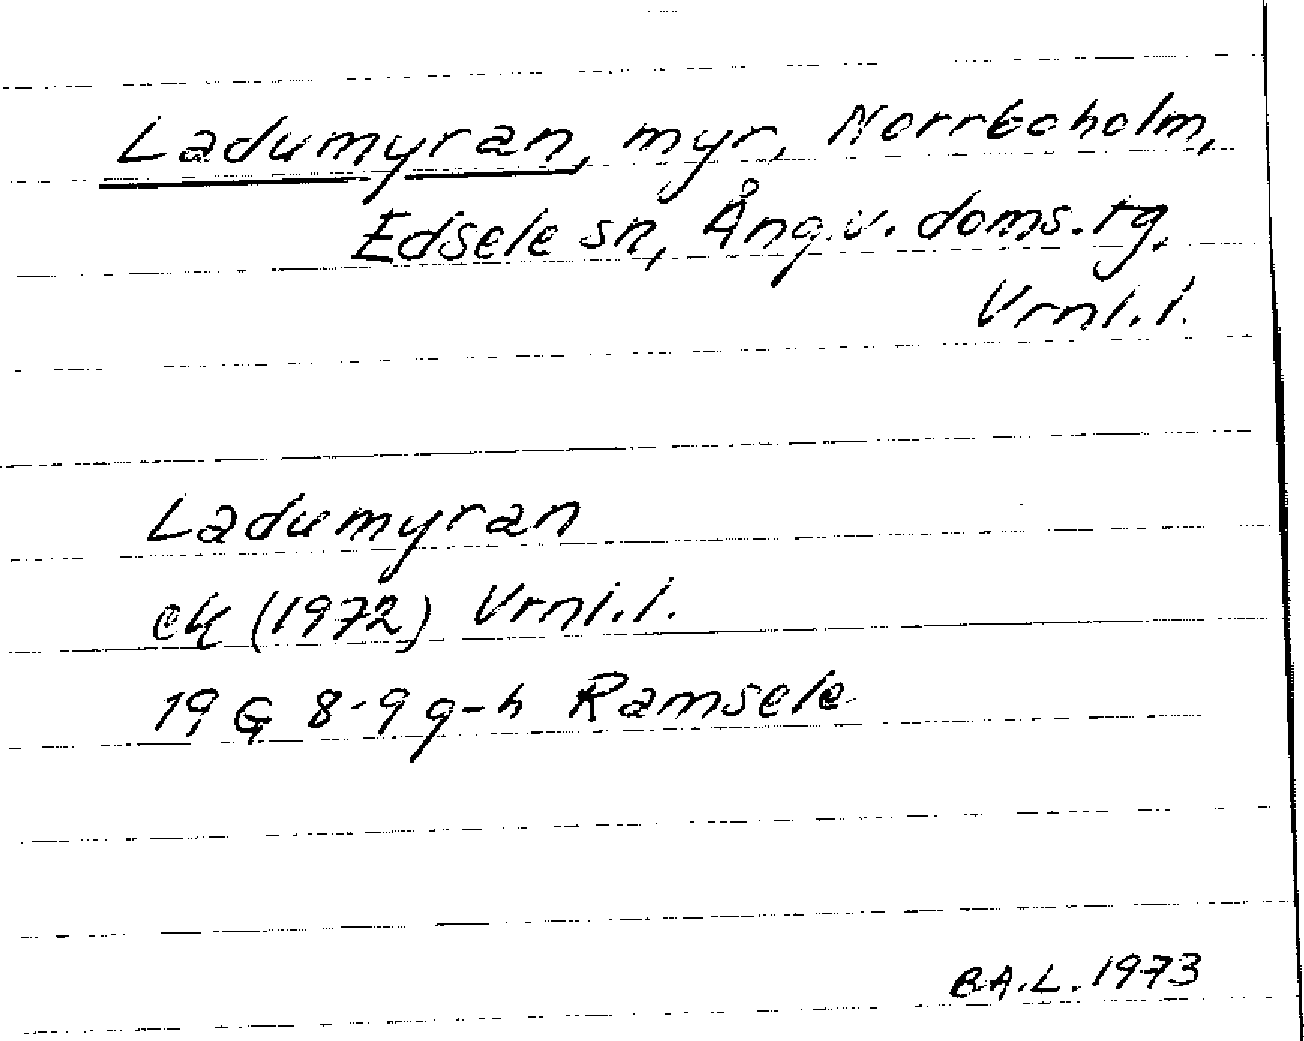 Ladumyran, myr, Norrboholm,
Edsele sn, Ång.v. doms. tg.
Vrnl.l.
Ladumyran
ek (1972) Vrnl.l.
19 G 8-9 g-h Ramsele
B.A.L. 1973